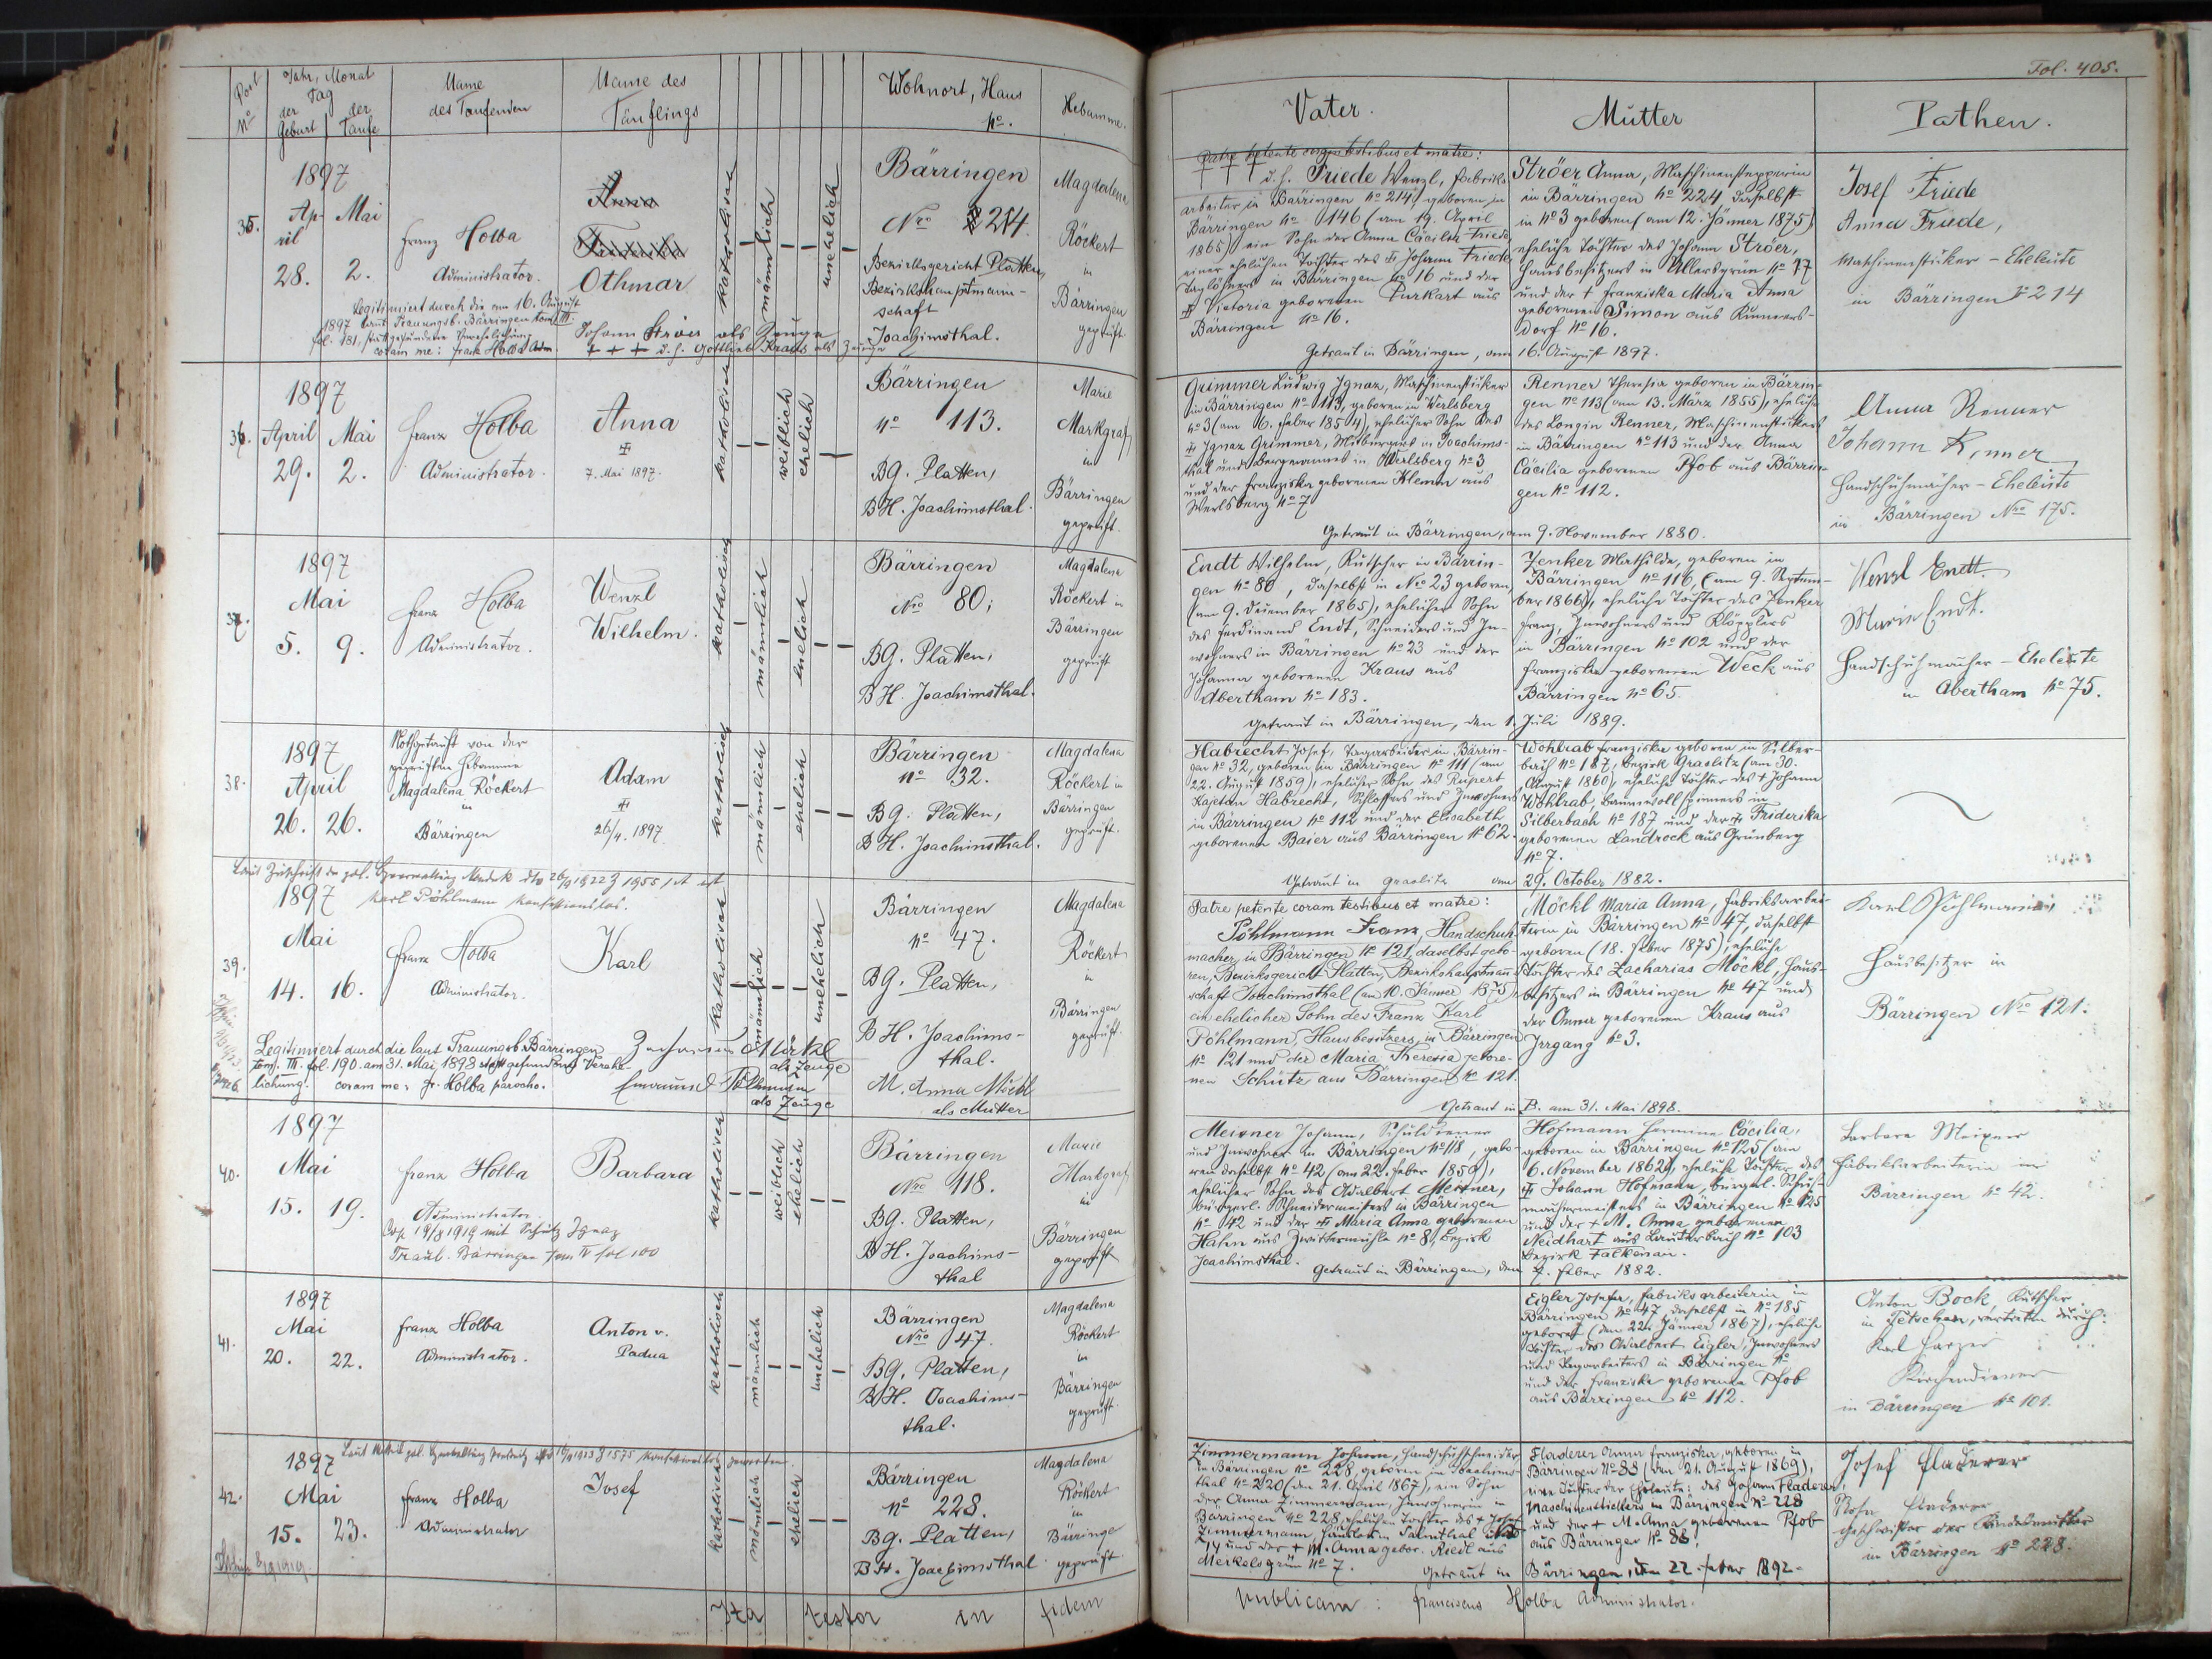 Fol. 405.
Post
No
Jahr, Monat
Tag
der Geburt
der Taufe
Name
des Taufenden
Name des
Täuflings
Wohnort, Haus
No.
Hebamme.
Vater.
Mutter
Pathen.
35.
1897
April
28.
Mai
2.
Franz Holba
Administrator.
Anna
Othmar
Legitimiert durch die am 16. August
1897 laut Trauungsb. Bärringen tom III.
fol. 181, stattgefundene Verehelichung
coram me: Franz Holba Adm.
Johann Ströer als Zeuge
+++ d. h. Gottlieb Kraus als Zeuge
katholisch
männlich
unehelich
Bärringen
Nro 224.
Bezirksgericht Platten,
Bezirkshauptmann-
schaft
Joachimsthal.
Magdalena
Röckert
in
Bärringen
geprüft
Patre petente coram testibus et matre:
+++ d. h. Friede Wenzl, Fabriks-
arbeiter in Bärringen No 214, geboren in
Bärringen No 146 (am 19. April
1865) ein Sohn der Anna Cäcilia Friede
einer ehelichen Tochter des + Johann Friede
Taglöhners in Bärringen No 16 und der
+ Victoria geborenen Purkart aus
Bärringen No 16.
Ströer Anna, Maschinenstepperin
in Bärringen No 224 daselbst
in No 3 geboren (am 12. Jänner 1875)
eheliche Tochter des Johann Ströer,
Hausbesitzers in Ullersgrün No 17
und der + Franziska Maria Anna
geborenen Simon aus Kunners-
dorf No 16.
Getraut in Bärringen, am 16. August 1897.
Josef Friede
Anna Friede,
Maschinensticker - Eheleute
in Bärringen No 214
36.
1897
April
29.
Mai
2.
Franz Holba
Administrator.
Anna
+
7. Mai 1897.
katholisch
weiblich
ehelich
Bärringen
No 113.
BG. Platten,
BH. Joachimsthal.
Marie
Markgraf
in
Bärringen
geprüft.
Grimmer Ludwig Ignaz, Maschinensticker
in Bärringen No 113, geboren in Werlsberg
No 3 (am 16. Feber 1854), ehelicher Sohn des
+ Ignaz Grimmer, Mitbürgers in Joachims-
thal und Bergmannes in Werlsberg No 3
und der Franziska geborenen Klemm aus
Werlsberg No 7
Renner Theresia geboren in Bärrin-
gen No 113 (am 13. März 1855), eheliche
des Longin Renner, Maschinenstickers
in Bärringen No 113 und der Anna
Cäcilia geborenen Pfob aus Bärrin-
gen No 112.
Getraut in Bärringen, am 9. November 1880.
Anna Renner
Johann Renner
Handschuhmacher - Eheleute
in Bärringen Nro 175.
37.
1897
Mai
5. 9.
Franz Holba
Administrator.
Wenzl
Wilhelm.
katholisch
männlich
ehelich
Bärringen
Nro 80;
BG. Platten,
BH. Joachimsthal.
Magdalena
Röckert in
Bärringen
geprüft
Endt Wilhelm, Kutscher in Bärrin-
gen No 80, daselbst in Nro 23 geboren
(am 9. Dezember 1865), ehelicher Sohn
des Ferdinand Endt, Schneiders und In-
wohners in Bärringen No 23 und der
Johanna geborenen Kraus aus
Abertham No 183.
Zenker Mathilde, geboren in
Bärringen No 116, (am 9. Septem-
ber 1866), eheliche Tochter des Zenker
Franz, Inwohners und Klöpplers
in Bärringen No 102 und der
Franziska geborenen Weck aus
Bärringen No 65.
Getraut in Bärringen, den 1. Juli 1889.
Wenzl Endt.
Marie Endt.
Handschuhmacher - Eheleute
in Abertham No 75.
38.
1897
April
26. 26.
Nothgetauft von der
geprüften Hebamme
Magdalena Röckert
in
Bärringen
Adam
+
26/4. 1897.
katholisch
männlich
ehelich
Bärringen
No 32.
BG. Platten,
BH. Joachimsthal.
Magdalena
Röckert in
Bärringen
geprüft.
Habrecht Josef, Tagarbeiter in Bärrin-
gen No 32, geboren in Bärringen No 111 (am
22. August 1859), ehelicher Sohn des Rupert
Kajetan Habrecht, Schlossers und Inwohners
in Bärringen No 112 und der Elisabeth
geborenen Baier aus Bärringen No 62.
Wohlrab Franziska geboren in Silber-
bach No 187, Bezirk Graslitz (am 30.
August 1860), eheliche Tochter des + Johann
Wohlrab, Baumwollspinners in
Silberbach No 187 und der + Friderika
geborenen Landrock aus Grünberg
No 7.
Getraut in Graslitz am 29. October 1882.
39.
Karl Pöhlmann konfessionslos.
1897
Mai
14. 16.
Franz Holba
Administrator.
Karl
Legitimiert durch die laut Trauungsb. Bärringen
tom. III. fol. 190. am 31. Mai 1898 stattgefundene Verehe-
lichung. coram me: Fr. Holba parocho.
Zacharias Möckl
als Zeuge
Emanuel Pöhlmann
als Zeuge
katholisch
männlich
unehelich
Bärringen
No 47.
BG. Platten,
BH. Joachims-
thal.
M. Anna Möckl
als Mutter
Magdalena
Röckert
in
Bärringen
geprüft.
Patre petente coram testibus et matre:
Pöhlmann Franz, Handschuh-
macher in Bärringen No 121, daselbst gebo-
ren, Bezirksgericht Platten, Bezirkshauptmann-
schaft Joachimsthal (am 10. Jänner 1875)
ein ehelicher Sohn des Franz Karl
Pöhlmann, Hausbesitzers, in Bärringen
No 121 und der Maria Theresia gebore-
nen Schütz aus Bärringen No 121.
Möckl Maria Anna, Fabriksarbei-
terin in Bärringen No 47, daselbst
geboren (18. Feber 1875), eheliche
Tochter des Zacharias Möckl, Haus-
besitzers in Bärringen No 47 und
der Anna geborenen Kraus aus
Irrgang No 3.
Getraut in B. am 31. Mai 1898.
Karl Pöhlmann,
Hausbesitzer in
Bärringen Nro 121.
40.
1897
Mai
15. 19.
Franz Holba
Administrator.
Cop. 19/8 1919 mit Schütz Ignaz
Traub. Bärringen tom IV fol 100
Barbara
katholisch
weiblich
ehelich
Bärringen
Nro 118.
BG. Platten,
BH. Joachims-
thal
Marie
Markgraf
in
Bärringen
geprüft
Meixner Johann, Schuldiener
und Inwohner in Bärringen No 118, gebo-
ren daselbst No 42 (am 22. Feber 1859),
ehelicher Sohn des Adalbert Meixner,
bürgerl. Schneidermeisters in Bärringen
No 42 und der + Maria Anna geborenen
Hahn aus Zwittermühle No 8, Bezirk
Joachimsthal.
Hofmann Hermine Cäcilia,
geboren in Bärringen No 125 (am
6. November 1862), eheliche Tochter des
+ Johann Hofmann, bürgerl. Schuh-
machermeisters in Bärringen No 125
und der + M. Anna geborenen
Neidhart aus Lauterbach No 103
Bezirk Falkenau.
Getraut in Bärringen, den 7. Feber 1882.
Barbara Meixner
Fabriksarbeiterin in
Bärringen No 42.
41.
1897
Mai
20. 22.
Franz Holba
Administrator.
Anton v.
Padua
katholisch
männlich
unehelich
Bärringen
Nro 47.
BG. Platten,
BH. Joachims-
thal.
Magdalena
Röckert
in
Bärringen
geprüft.
Eigler Josefa, Fabriksarbeiterin in
Bärringen No 47, daselbst in No 185
geboren (den 22. Jänner 1867), eheliche
Tochter des Adalbert Eigler, Inwohners
und Tagarbeiters in Bärringen No
und der Franziska geborenen Pfob
aus Bärringen No 112.
Anton Bock, Kutscher
in Tetschen, vertreten durch:
Karl
Kirchendiener
in Bärringen No 101.
42.
1897
Mai
15. 23.
Franz Holba
Administrator
Josef
katholisch
männlich
ehelich
Bärringen
No 228.
BG. Platten,
BH. Joachimsthal
Magdalena
Röckert
in
Bärringen
geprüft.
Zimmermann Johann, Handschuhschneider
in Bärringen No 228, geboren in Joachims-
thal No 220 (den 21. April 1867), ein Sohn
der Anna Zimmermann, Inwohnerin in
Bärringen No 228, ehelichen Tochter des + Josef
Zimmermann,
und der + M. Anna gebor. Riedl aus
Merkelsgrün No 7.
Fladerer Anna Franziska, geboren in
Bärringen No 88 (den 21. August 1869),
eine Tochter der Eheleute: des Johann Fladerer,
Maschinenstickers in Bärringen No 228
und der + M. Anna geborenen Pfob
aus Bärringen No 88.
Getraut in Bärringen, den 22. Feber 1892.
Josef Fladerer
Fladerer
Geschwister der Kindesmutter
in Bärringen No 228.
Ita testor in fidem
publicam: Franciscus Holba Administrator.